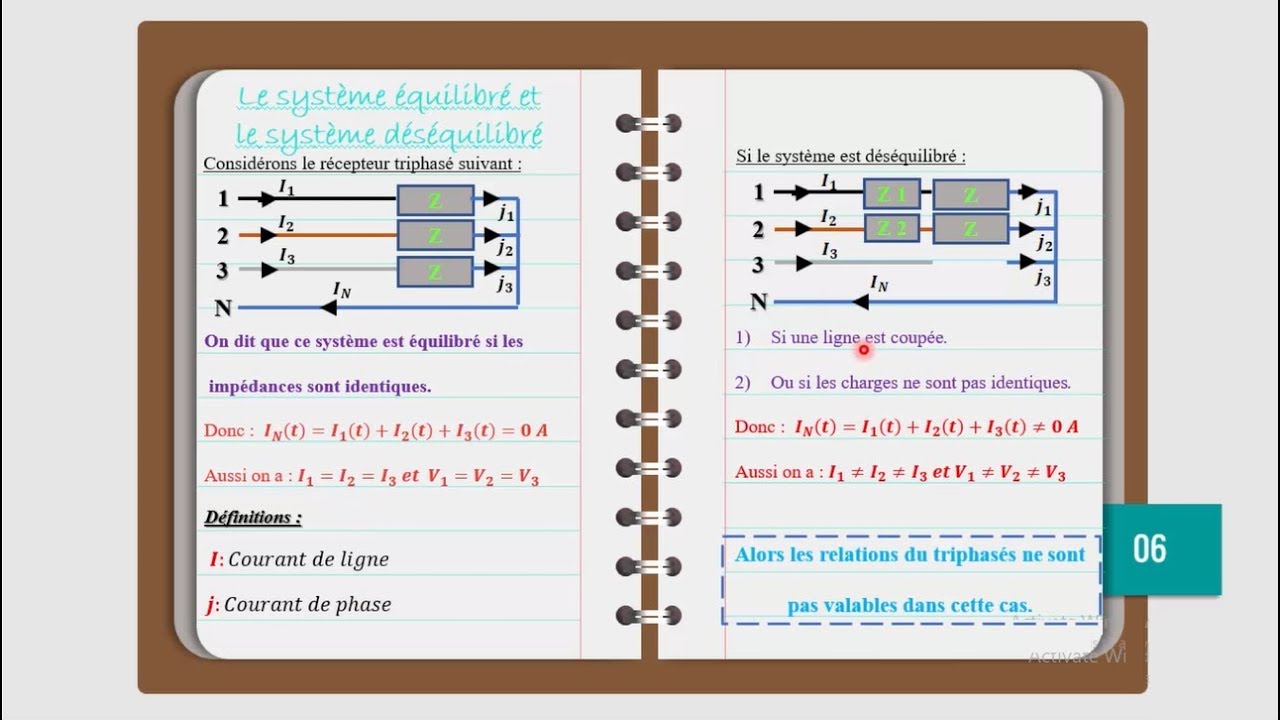 Le système équilibré et
le système déséquilibré
Considérons le récepteur triphasé suivant :
1 I₁ Z j₁
2 I₂ Z j₂
3 I₃ Z j₃
N I_N
On dit que ce système est équilibré si les
impédances sont identiques.
Donc : I_N(t) = I₁(t) + I₂(t) + I₃(t) = 0 A
Aussi on a : I₁ = I₂ = I₃ et V₁ = V₂ = V₃
Définitions :
I: Courant de ligne
j: Courant de phase
Si le système est déséquilibré :
1 I₁ Z 1 Z j₁
2 I₂ Z 2 Z j₂
3 I₃ j₃
N I_N
1) Si une ligne est coupée.
2) Ou si les charges ne sont pas identiques.
Donc : I_N(t) = I₁(t) + I₂(t) + I₃(t) ≠ 0 A
Aussi on a : I₁ ≠ I₂ ≠ I₃ et V₁ ≠ V₂ ≠ V₃
Alors les relations du triphasés ne sont
pas valables dans cette cas.
06
Activate Wi